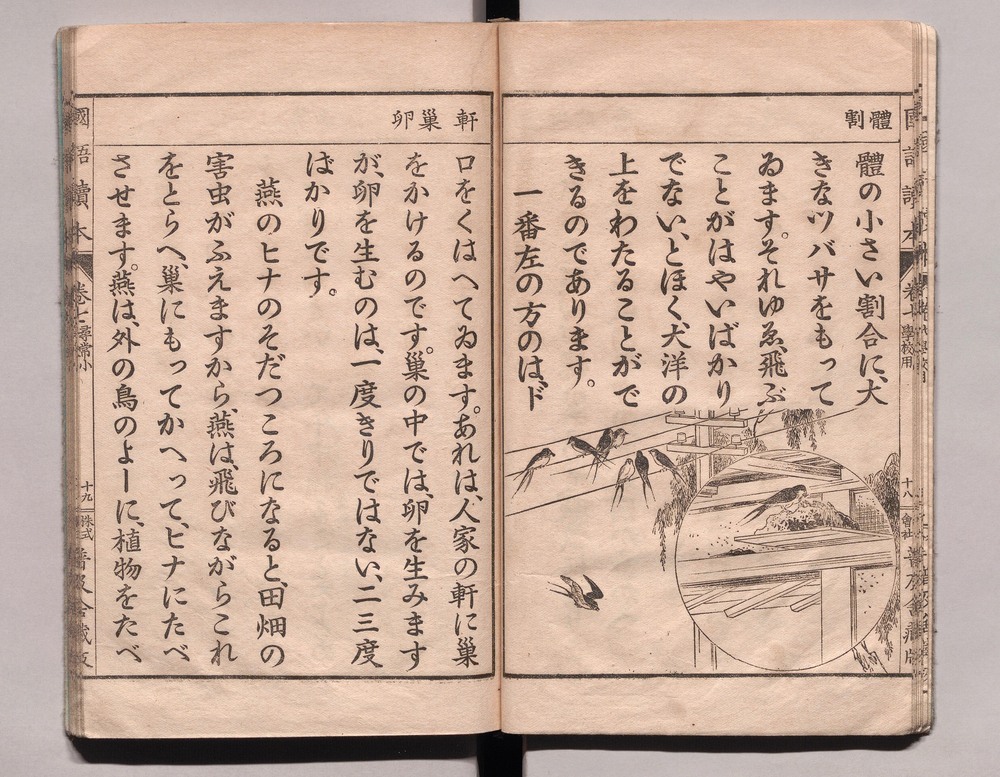 體割
體の小さい割合に、大
きなツバサをもって
ゐます。それゆゑ、飛ぶ
ことがはやいばかり
でない、とほく大洋の
上をわたることがで
きるのであります。
一番左の方のは、ド
軒巢卵
ロをくはへてゐます。あれは、人家の軒に巢
をかけるのです。巢の中では、卵を生みます
が、卵を生むのは、一度きりではない、二三度
ばかりです。
燕のヒナのそだつころになると、田畑の
害虫がふえますから、燕は、飛びながらこれ
をとらへ、巢にもってかへって、ヒナにたべ
させます。燕は、外の鳥のよーに、植物をたべ
國語讀本
卷七尋常小
十九
株式